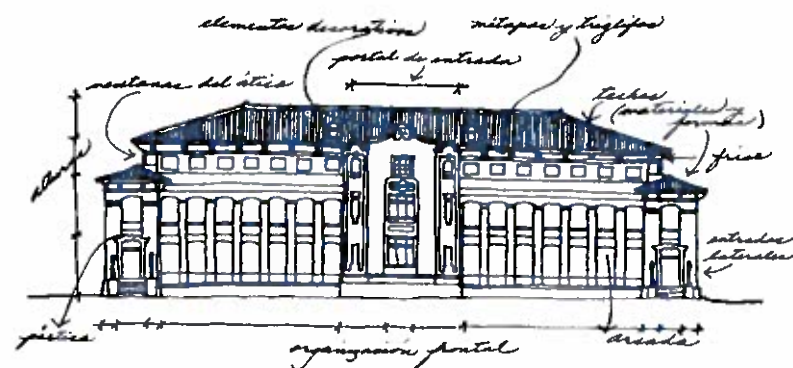 elementos decorativos
métopas y triglifos
portal de entrada
ventanas del ático
techos
(materiales y
formas)
friso
altura
entradas
laterales
pórtico
organización frontal
arcada